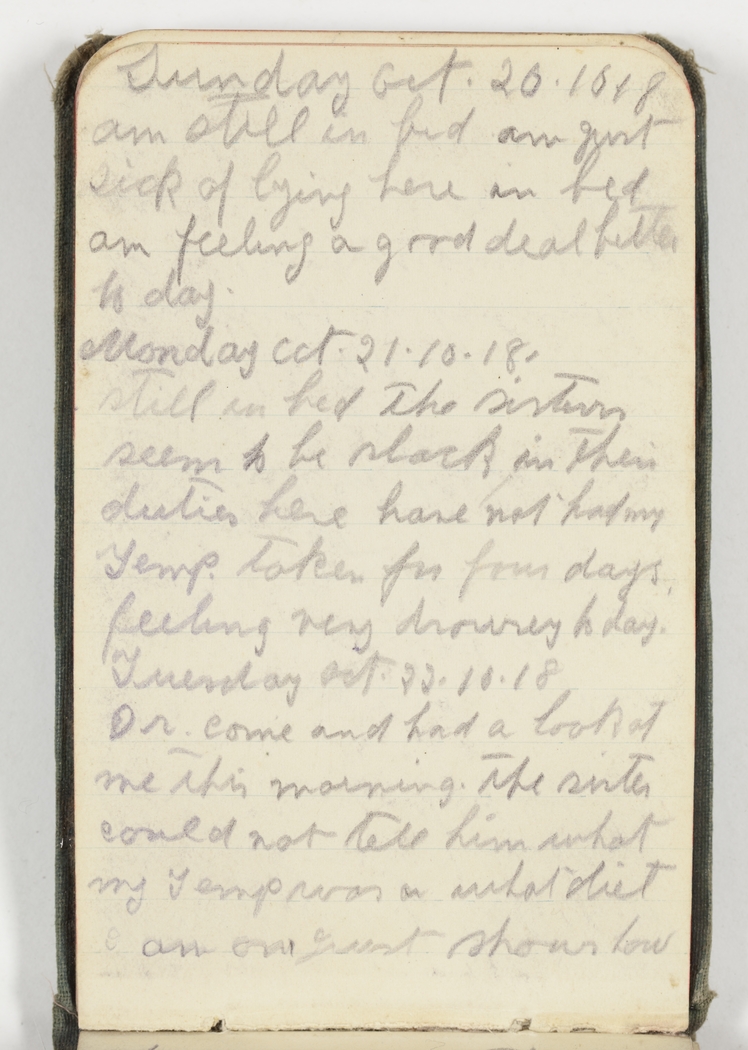 Sunday Oct. 20.10.18
am still in bed am just
sick of lying here in bed
am feeling a good deal better
to day.
Monday Oct. 21.10.18.
still in bed the sisters
seem to be slack in their
duties here have not had my
Temp. taken for four days,
feeling very drowsey to day.
Tuesday Oct. 22.10.18
Dr. come and had a look at
me this morning. The sister
could not tell him what
my Temp was or what diet
I am on Just shows how